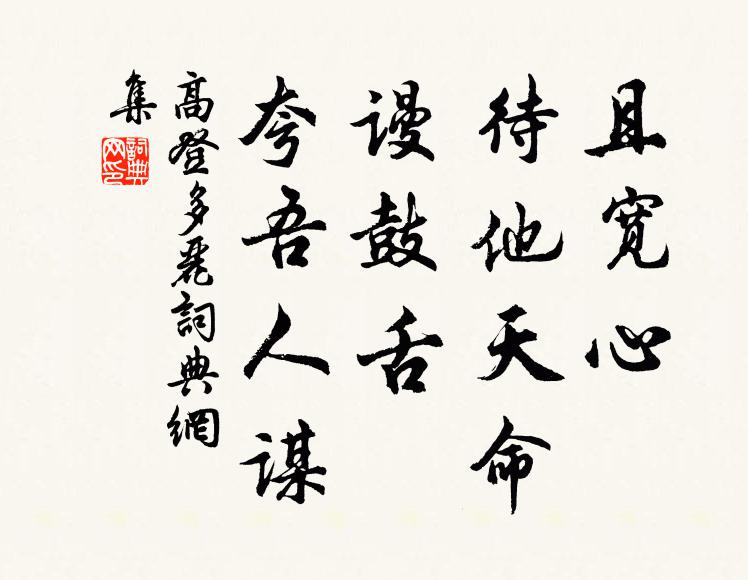 且寬心
待他天命
谩鼓舌
夸吾人謀
高登多麗詞典網
集
詞典网印